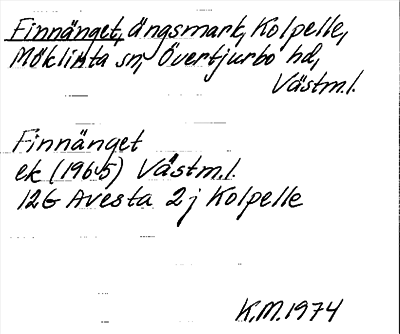 Finnänget, ängsmark, Kolpelle,
Möklinta sn, Övertjurbo hd,
Västm.l.
Finnänget
ek (1965) Västm.l.
12G Avesta 2j Kolpelle
K.M. 1974